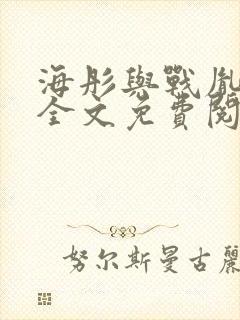 海彤與戰胤
全文免費閱
努尔斯曼古麗